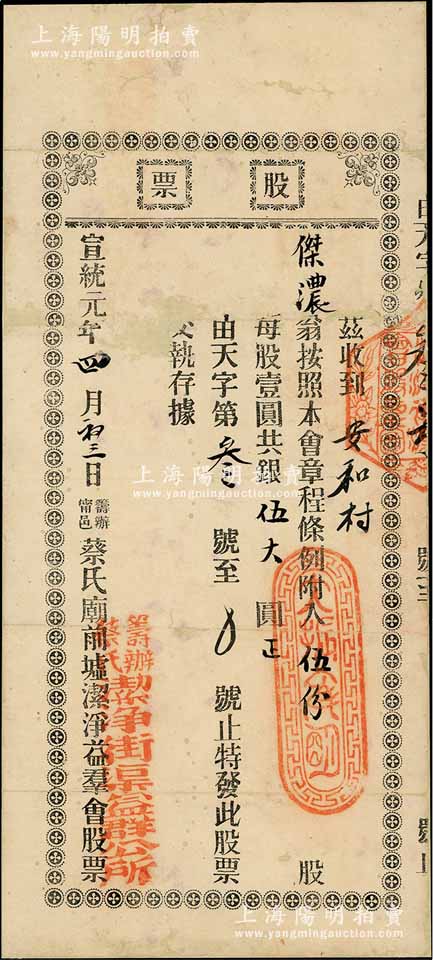 上海陽明拍賣
www.yangmingauction.com
股票
茲收到 安和村
傑濃 翁按照本會章程條例附入 伍份 股
每股壹圓共銀 伍大 圓 正
由天字第 叁 號至 號止特發此股票
執存據
宣統元年 四 月 初三 日 籌辦甯邑 蔡氏廟前墟潔淨益羣會股票
籌辦
蔡氏
潔淨街
益群公所
上海陽明拍賣
www.yangmingauction.com
上海陽明拍賣
www.yangmingauction.com